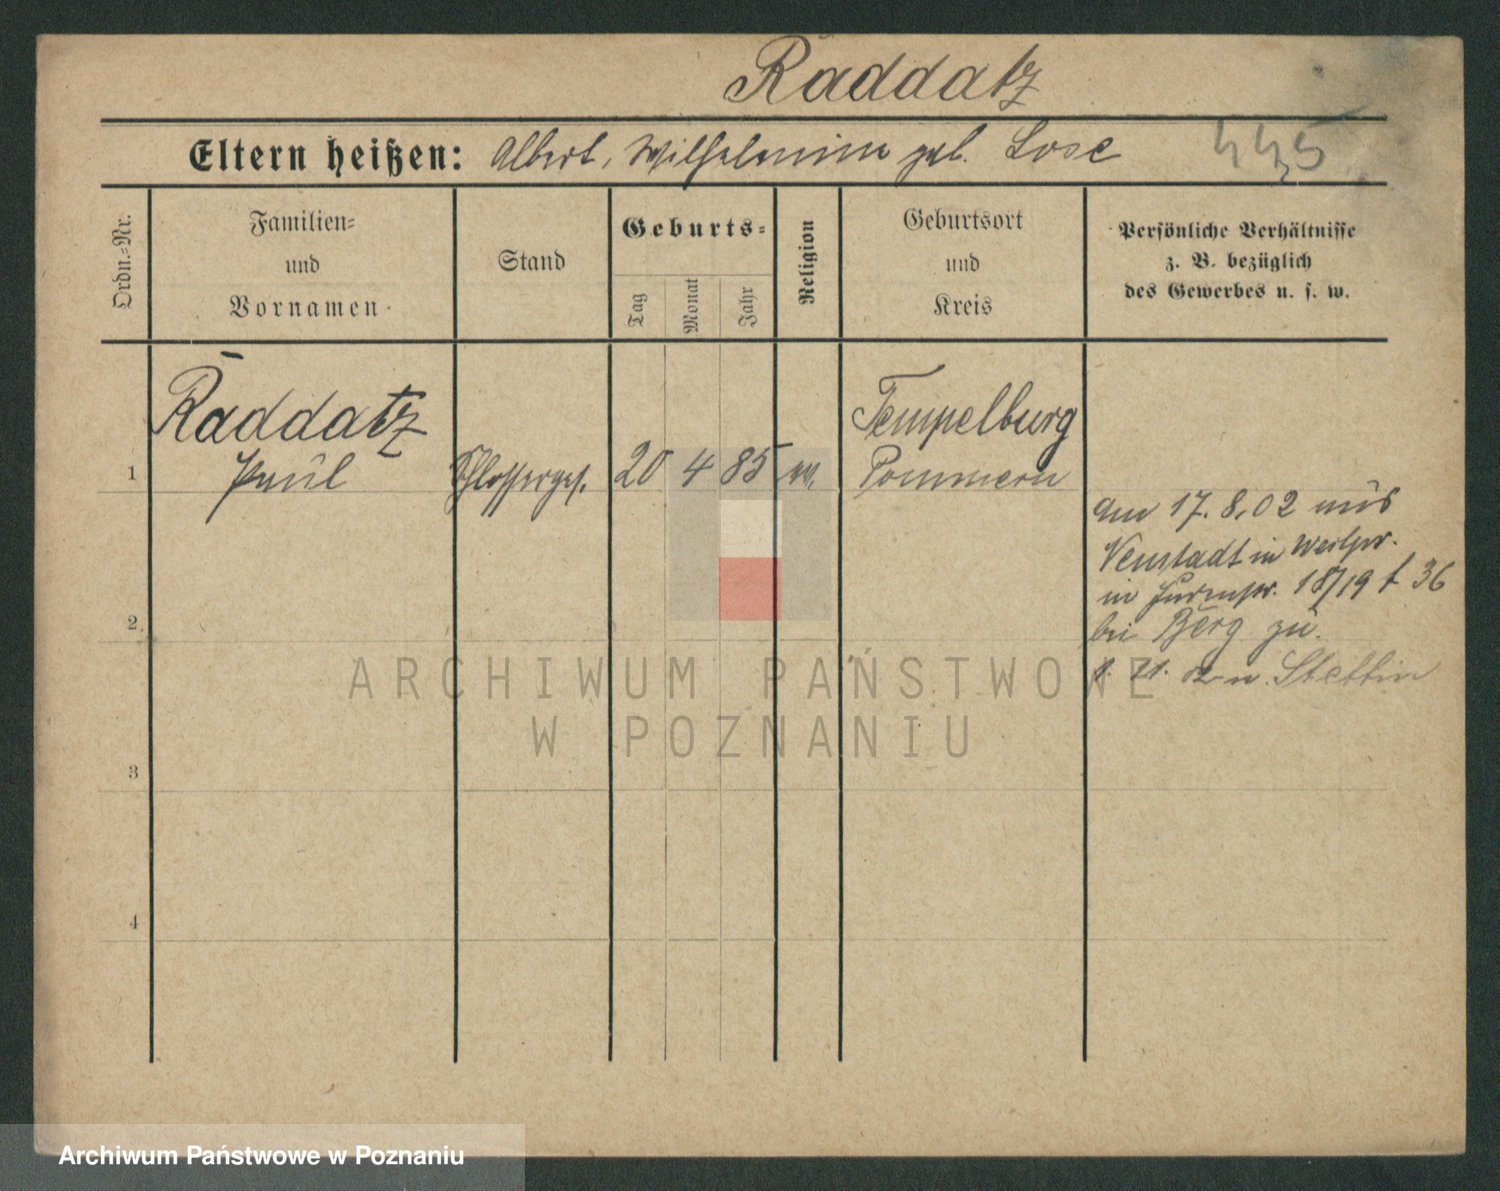 Raddatz
Eltern heißen: Albert, Wilhelmine geb. Lose
445
Ordn.-Nr.
Familien-
und
Vornamen
Stand
Geburts-
Tag
Monat
Jahr
Religion
Geburtsort
und
Kreis
Persönliche Verhältnisse
z. B. bezüglich
des Gewerbes u. s. w.
1
Raddatz
Paul
Schlosserges.
20 4 85
Tempelburg
Pommern
am 17. 8. 02 aus
Neustadt in Westpr.
in 18/19 36
bei Berg zu.
n. Stettin
2
3
4
ARCHIWUM PAŃSTWOWE
W POZNANIU
Archiwum Państwowe w Poznaniu